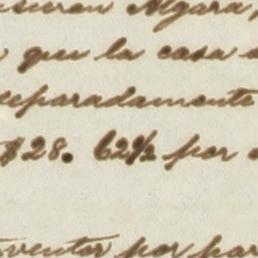 usieran Algara,
que la casa
separadamente
$28. 62½ por
ventor por par